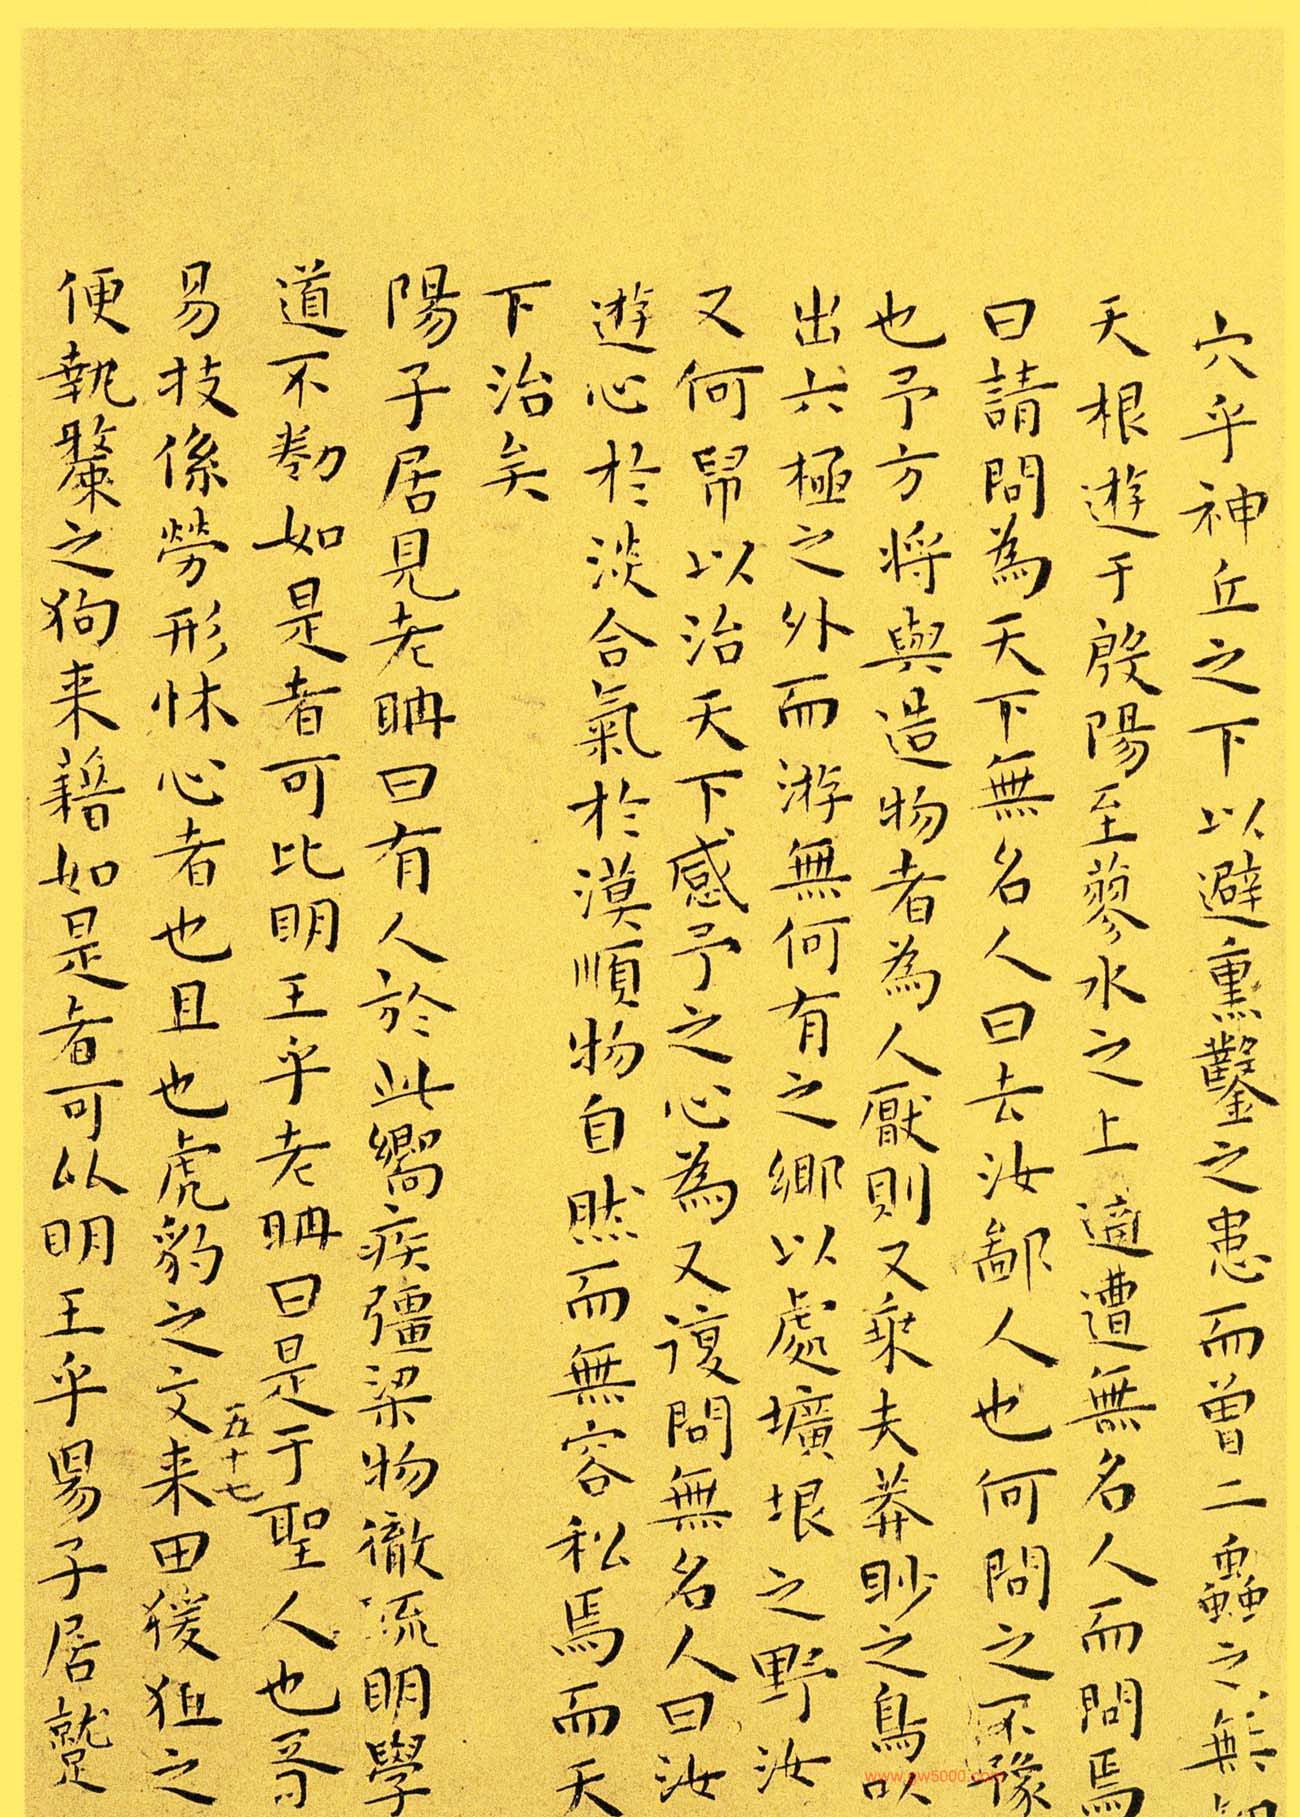 穴乎神丘之下以避熏鑿之患而曾二蟲之無知
天根遊于殷陽至蓼水之上適遭無名人而問焉
曰請問為天下無名人曰去汝鄙人也何問之不豫
也予方將與造物者為人厭則又乗夫莽眇之鳥以
出六極之外而游無何有之鄉以處壙垠之野汝
又何帠以治天下感予之心為又復問無名人曰汝
遊心於淡合氣於漠順物自然而無容私焉而天
下治矣
陽子居見老聃曰有人於此嚮疾彊梁物徹流明學
道不勌如是者可比明王乎老聃曰是于聖人也胥
易技係勞形怵心者也且也虎豹之文来田猨狙之
五十七
便執斄之狗来藉如是者可以明王乎陽子居蹵
www.9w5000.com